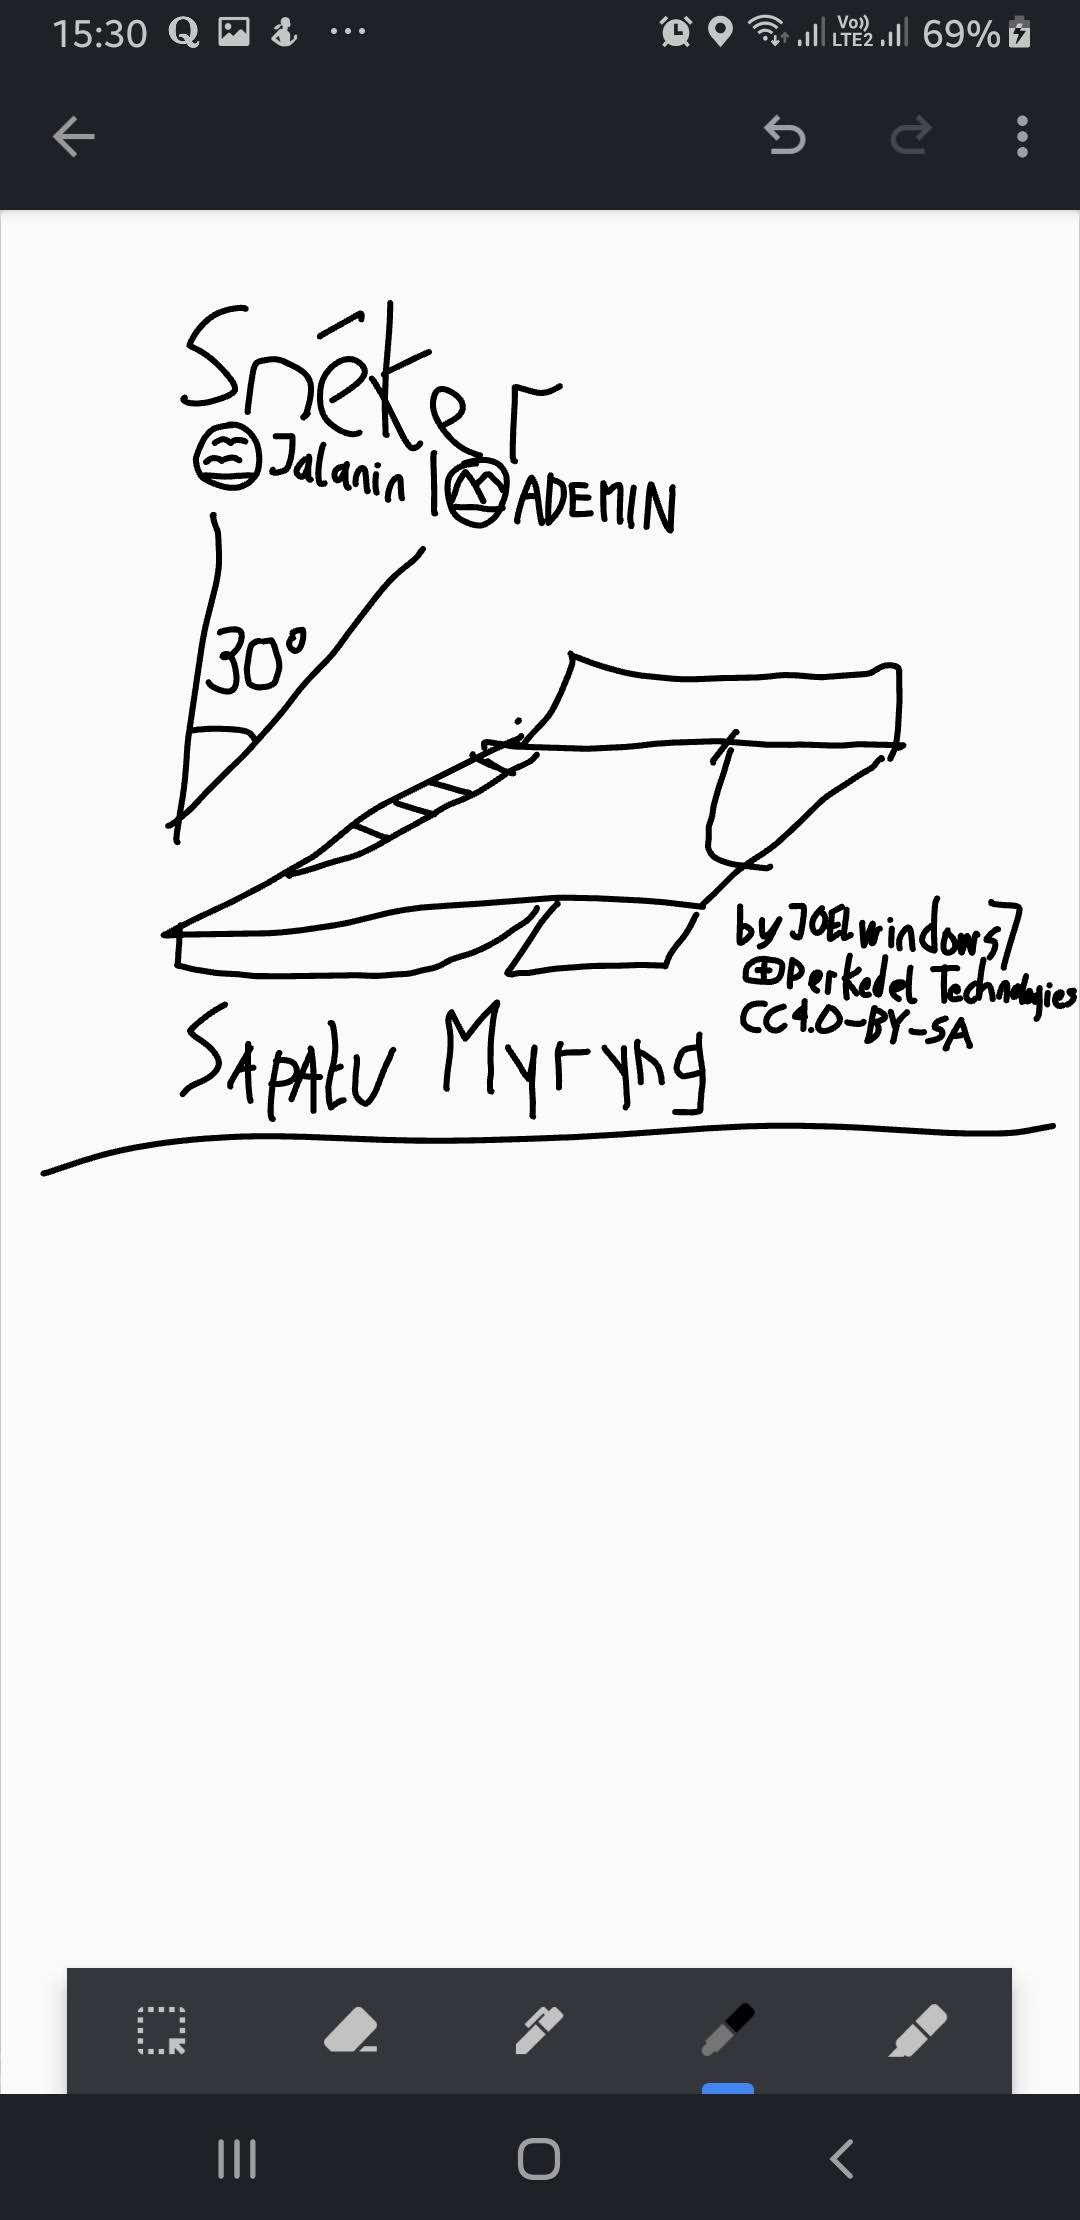 15:30 Vo)) LTE2 69%
Snéker
Jalanin | ADEMIN
30°
by JOELwindows7
Perkedel Technologies
CC4.0-BY-SA
SAPAtU Myryng